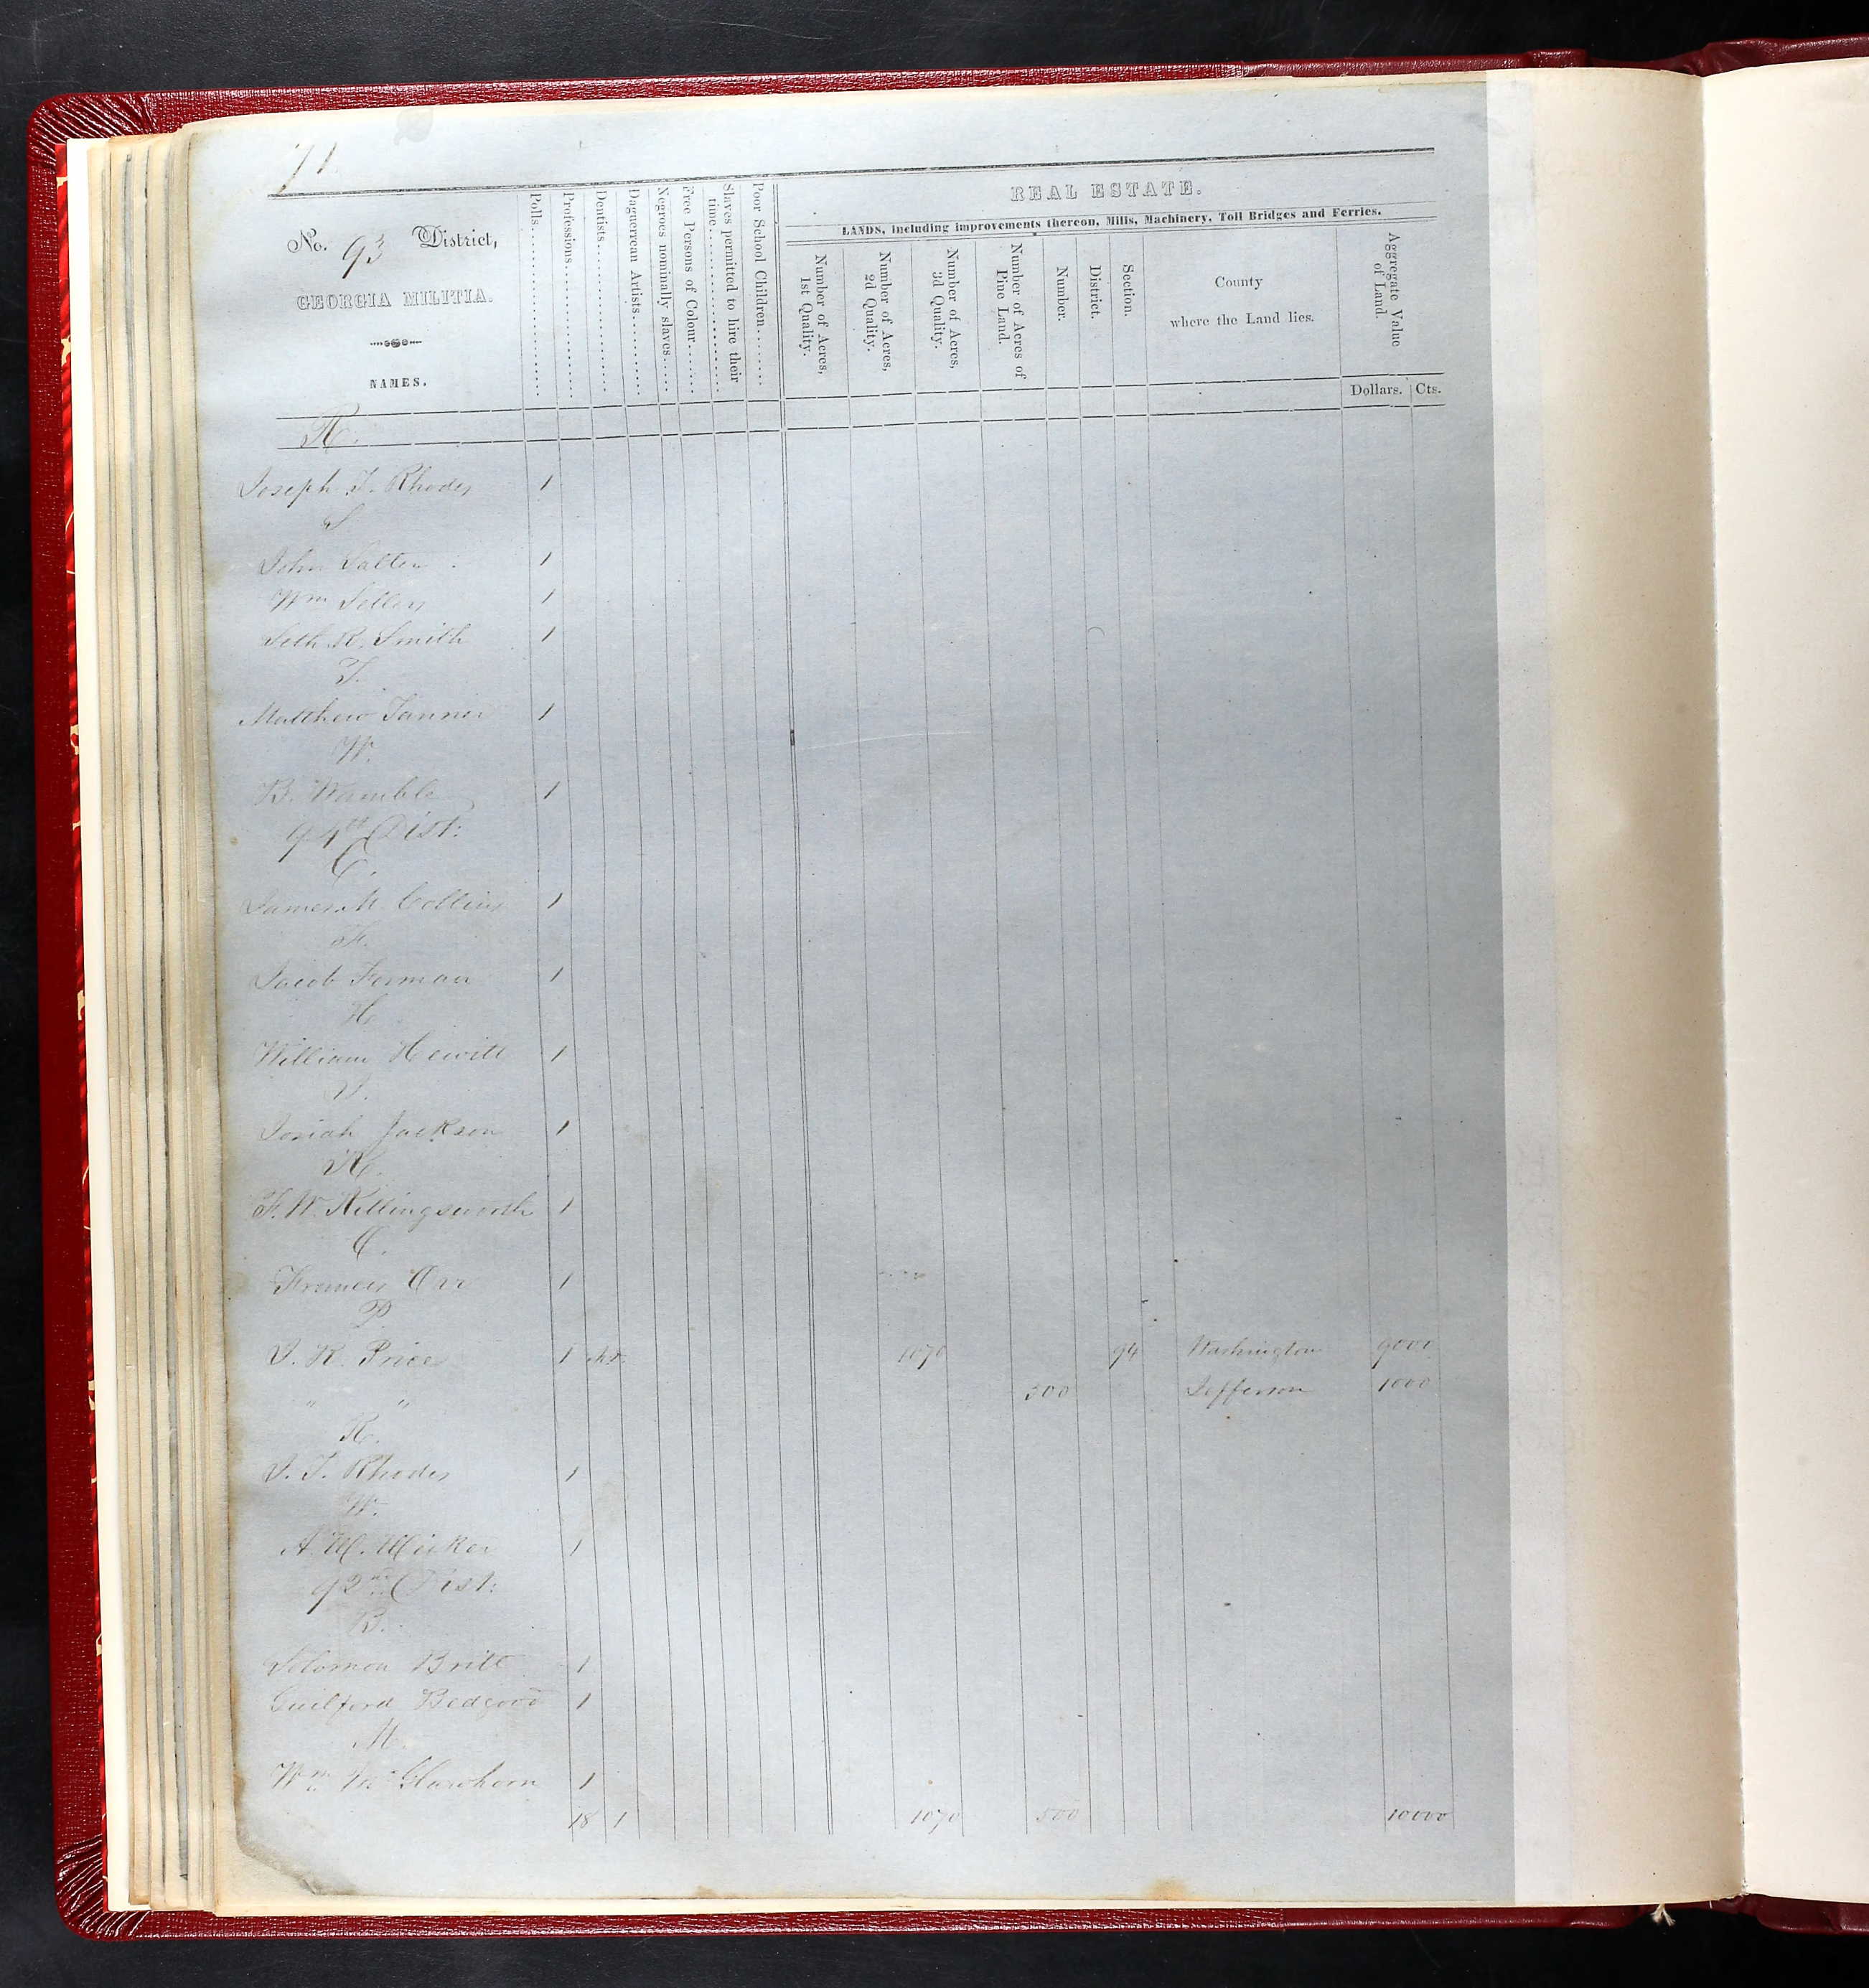 71
No. 93 District,
GEORGIA MILITIA.
NAMES.
Polls
Professions
Dentists
Daguerrean Artists
Negroes nominally slaves
Free Persons of Colour
Slaves permitted to hire their time
Poor School Children
REAL ESTATE.
LANDS, including improvements thereon, Mills, Machinery, Toll Bridges and Ferries.
Number of Acres, 1st Quality.
Number of Acres, 2d Quality.
Number of Acres, 3d Quality.
Number of Acres of Pine Land.
Number.
District.
Section.
County where the Land lies.
Aggregate Value of Land.
Dollars. Cts.
R.
Joseph T. Rhodes 1
S
John Salter 1
Wm Sellers 1
Seth R. Smith 1
T.
Matthew Tanner 1
W.
B. Wamble 1
94th Dist:
C.
James M Collins 1
F.
Jacob Forman 1
H.
William Hewitt 1
J.
Josiah Jackson 1
K.
F. W. Killingsworth 1
O.
Francis Orr 1
P
J. R. Price 1 1070 94 Washington 9000
" " 500 Jefferson 1000
R.
J. T. Rhodes 1
W.
A. M. 1
92nd Dist:
B.
Solomon Britt 1
Guilford Bedgood 1
M.
Wm McGlawhorn 1
18 1 1070 500 10000